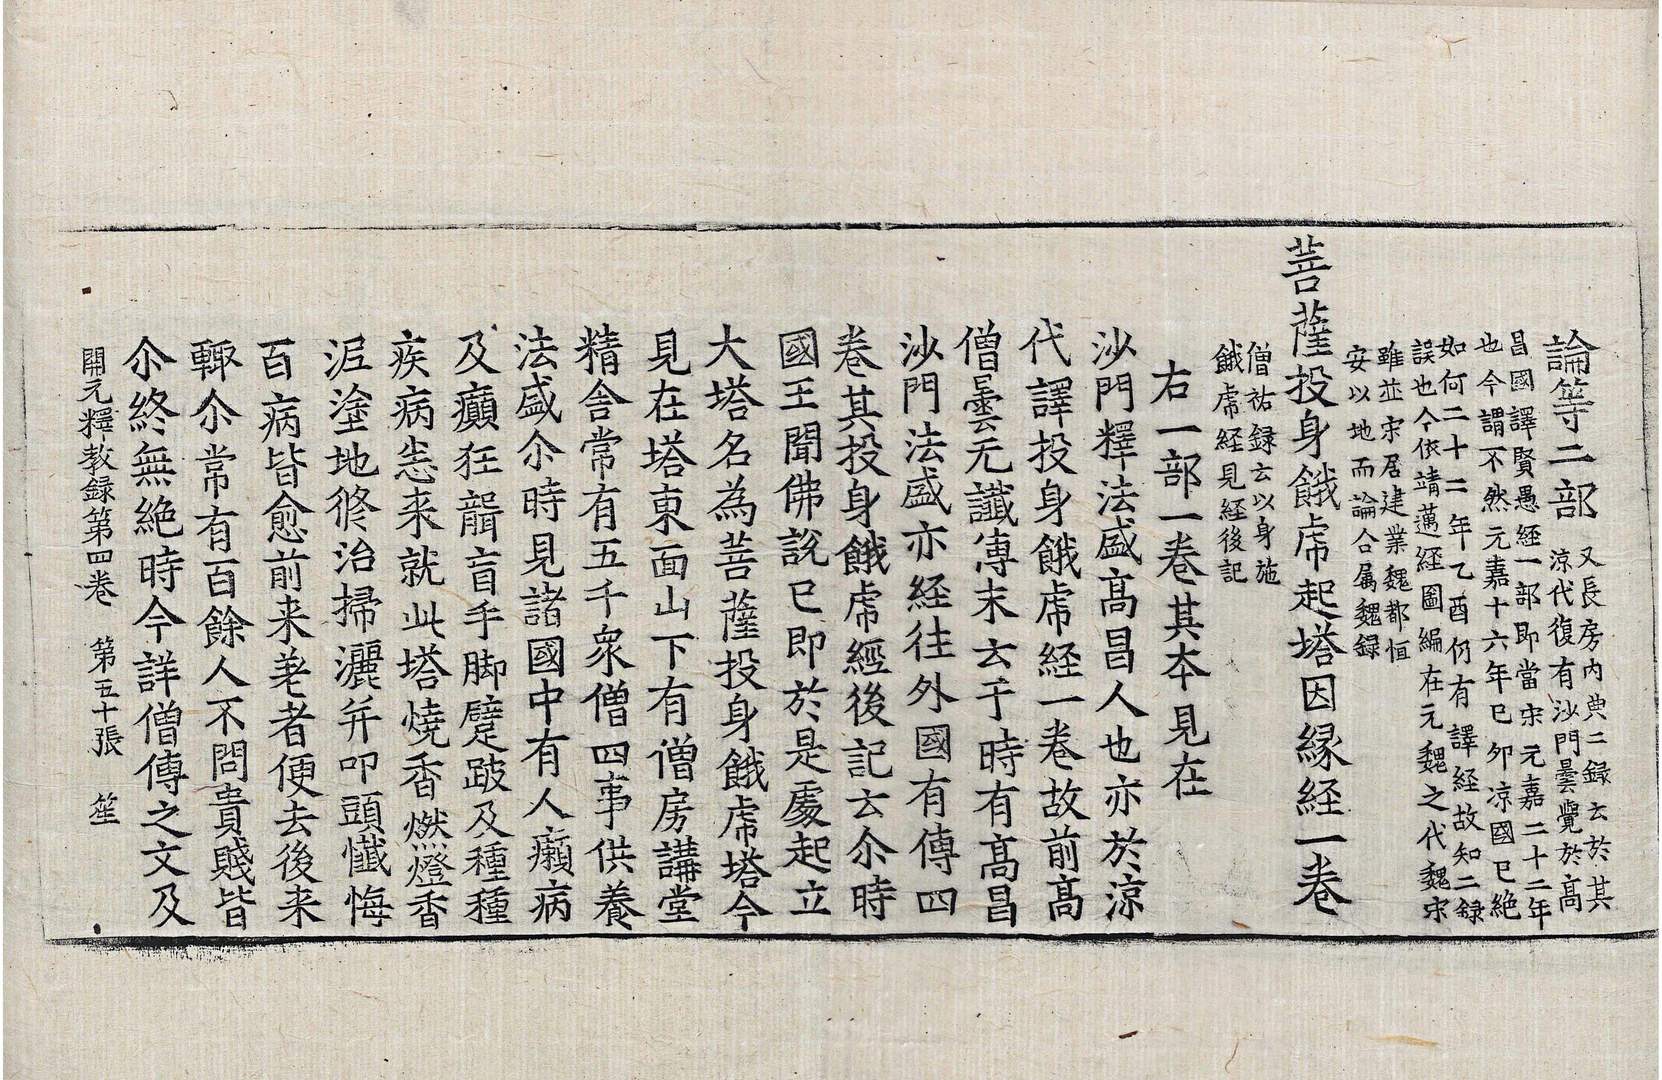 論等二部
又長房内典二録云於其
涼代復有沙門曇覺於高
昌國譯賢愚經一部即當宋元嘉二十二年
也今謂不然元嘉十六年己卯凉國已絶
如何二十二年乙酉仍有譯経故知二録
誤也今依靖邁經圖編在元魏之代魏宋
雖並宋居建業魏都恒
安以地而論合属魏録
菩薩投身餓虎起塔因縁経一巻
僧祐録云以身施
餓虎経見経後記
右一部一巻其夲見在
沙門釋法盛髙昌人也亦於涼
代譯投身餓虎経一巻故前髙
僧曇无讖傳末云于時有髙昌
沙門法盛亦経往外國有傳四
巻其投身餓虎經後記云尒時
國王聞佛說已即於是處起立
大塔名為菩薩投身餓虎塔今
見在塔東面山下有僧房講堂
精舎常有五千衆僧四事供養
法盛尒時見諸國中有人癩病
及癲狂聾盲手脚躄跛及種種
疾病恙来就此塔燒香燃燈香
泥塗地修治掃灑并叩頭懺悔
百病皆愈前来差者便去後来
輙尒常有百餘人不問貴賤皆
尒終無絶時今詳僧傳之文及
開元釋教録第四巻 第五十張 笙